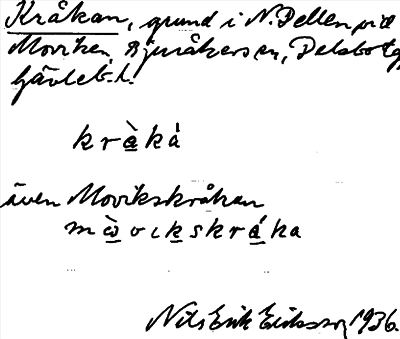 Kråkan, grund i N. Dellen vid
Moviken, Bjuråkers sn, Delsbo tg,
Gävleb. l.
kràká
även Movikskråkan
mòvikskráka
Nils Erik Eriksson 1936.